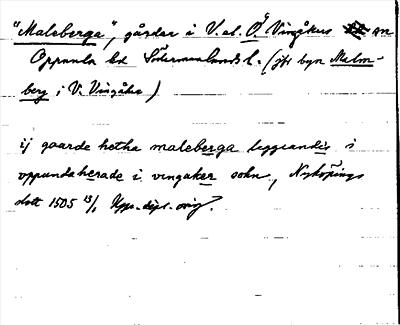 "Maleberga", gårdar i V. el. Ö. Vingåkers sn
Oppunda hd Södermanlands l. (jfr byn Malm-
berg i V. Vingåker)
ij gaarde hetha maleberga liggiandis i
oppundaherade i vingaker sokn, Nyköpings
slott 1505 13/1 Upps. dipl. orig.